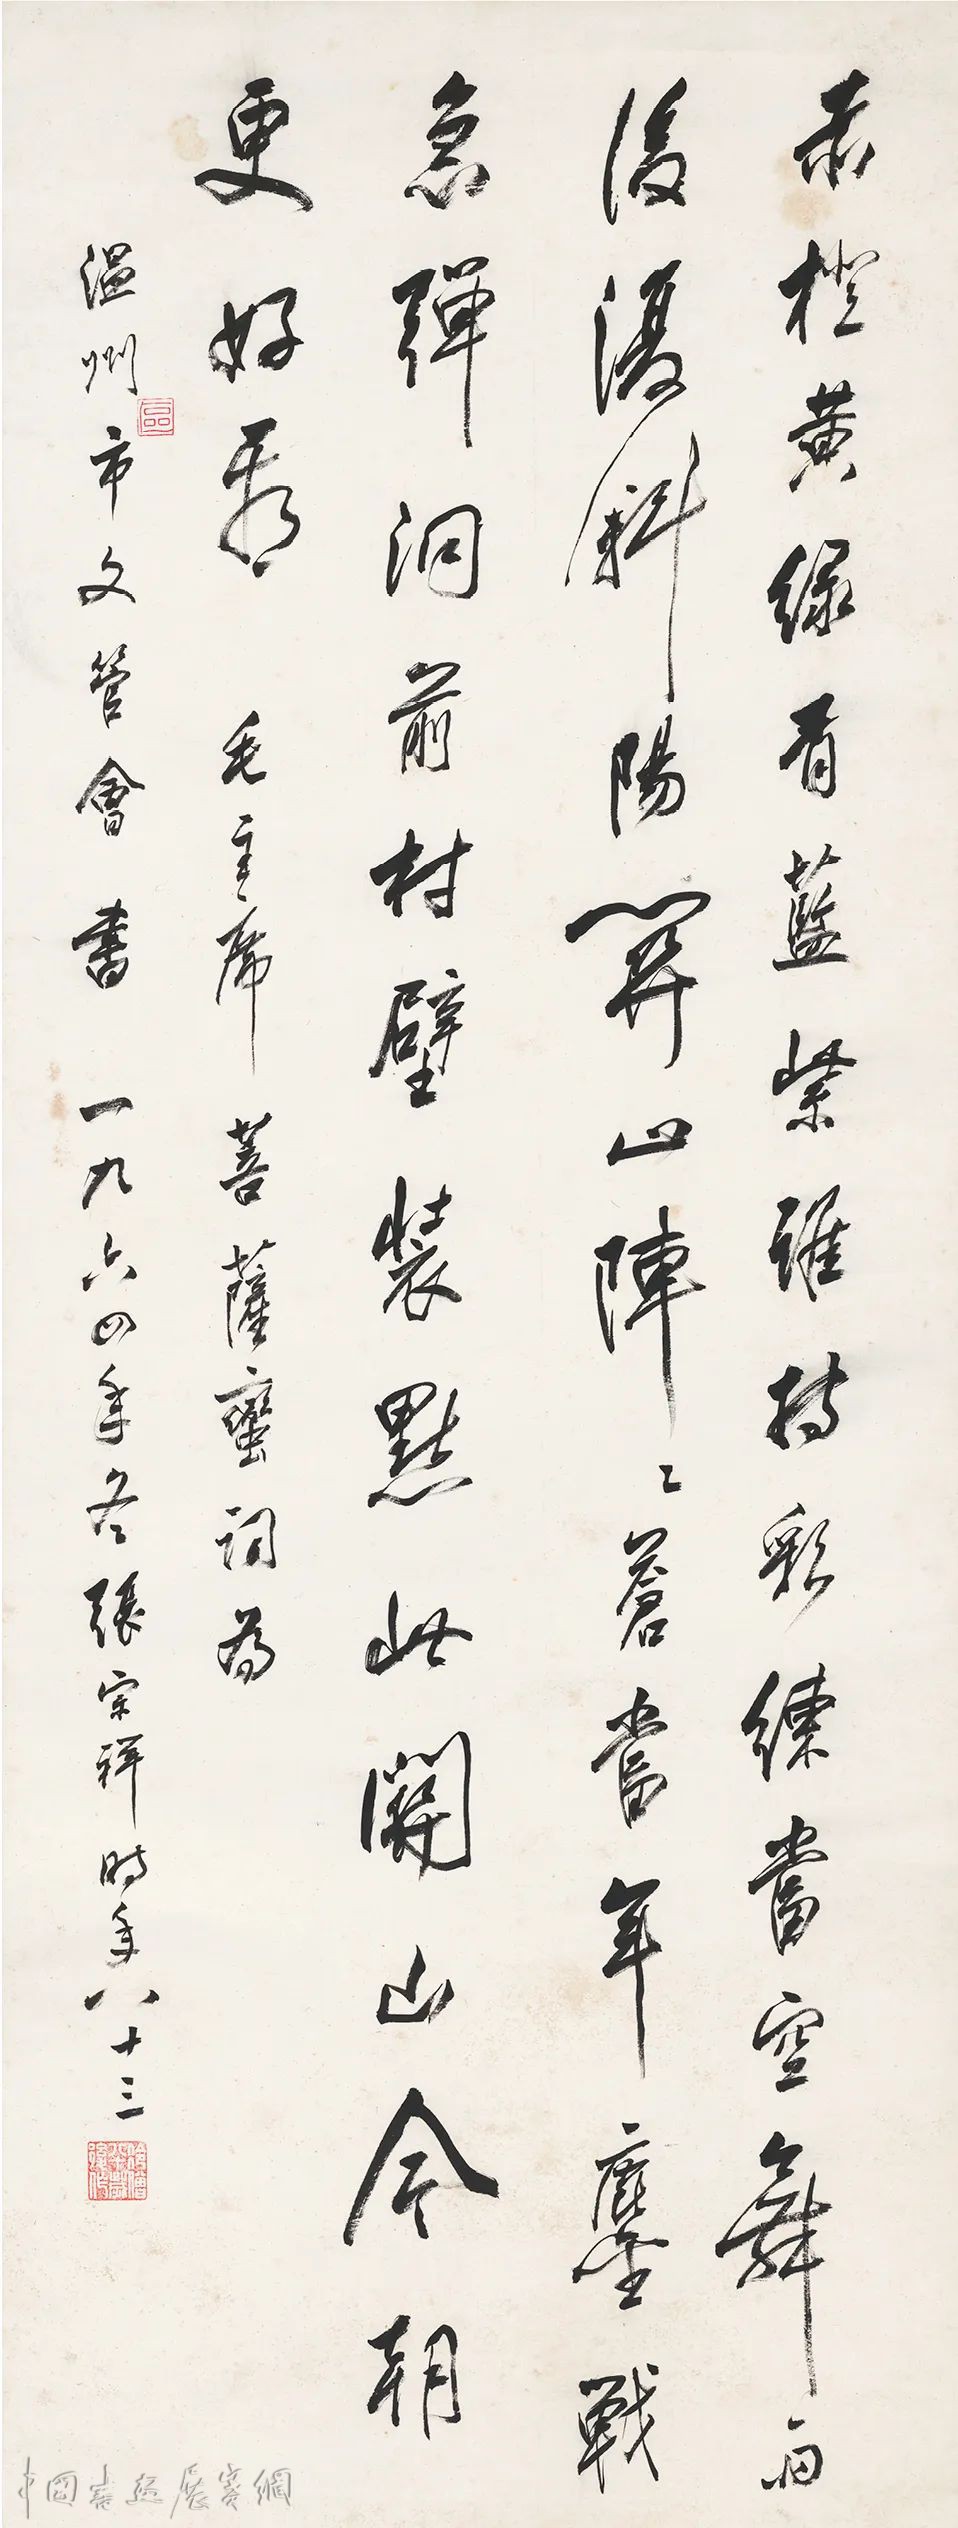 赤橙黄綠青藍紫誰持彩練當空舞雨
後復斜陽關山陣〻蒼當年鏖戰
急彈洞前村壁裝點此關山今朝
更好看 毛主席 菩薩蠻詞為
温州市文管會 書 一九六四年冬張宗祥時年八十三
中國書畫展賽網